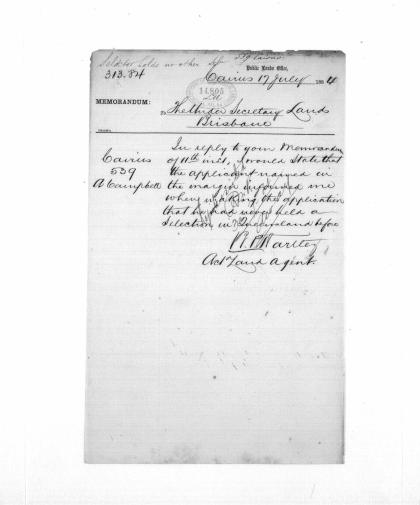 Selector holds no other Sel 539 Cairns
313.84
Public Lands Office,
Cairns 17 July 1884
14805
MEMORANDUM:
To The Under Secretary Lands
Brisbane
In reply to your Memorandum
Cairns of 11th inst, I would State that
539 the applicant named in
A Campbell the margin informed me
when making the application
that he had never held a
Selection in Queensland before
Act Land Agent.